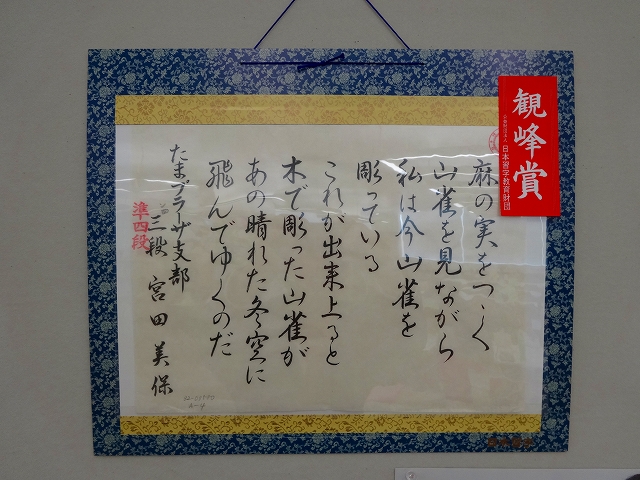 観峰賞
公益財団法人 日本習字教育財団
麻の実をつゝく
山雀を見ながら
私は今山雀を
彫っている
これが出来上ると
木で彫った山雀が
あの晴れた冬空に
飛んでゆくのだ
たまプラーザ支部
三段 宮田美保
準四段